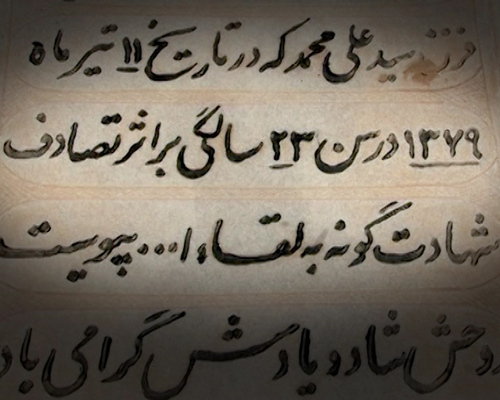 فرزند سید علی محمد که در تاریخ ۱۱ تیر ماه
۱۳۷۹ در سن ۲۳ سالگی بر اثر تصادف
شهادت گونه به لقاء ا... پیوست
روحش شاد و یادش گرامی باد